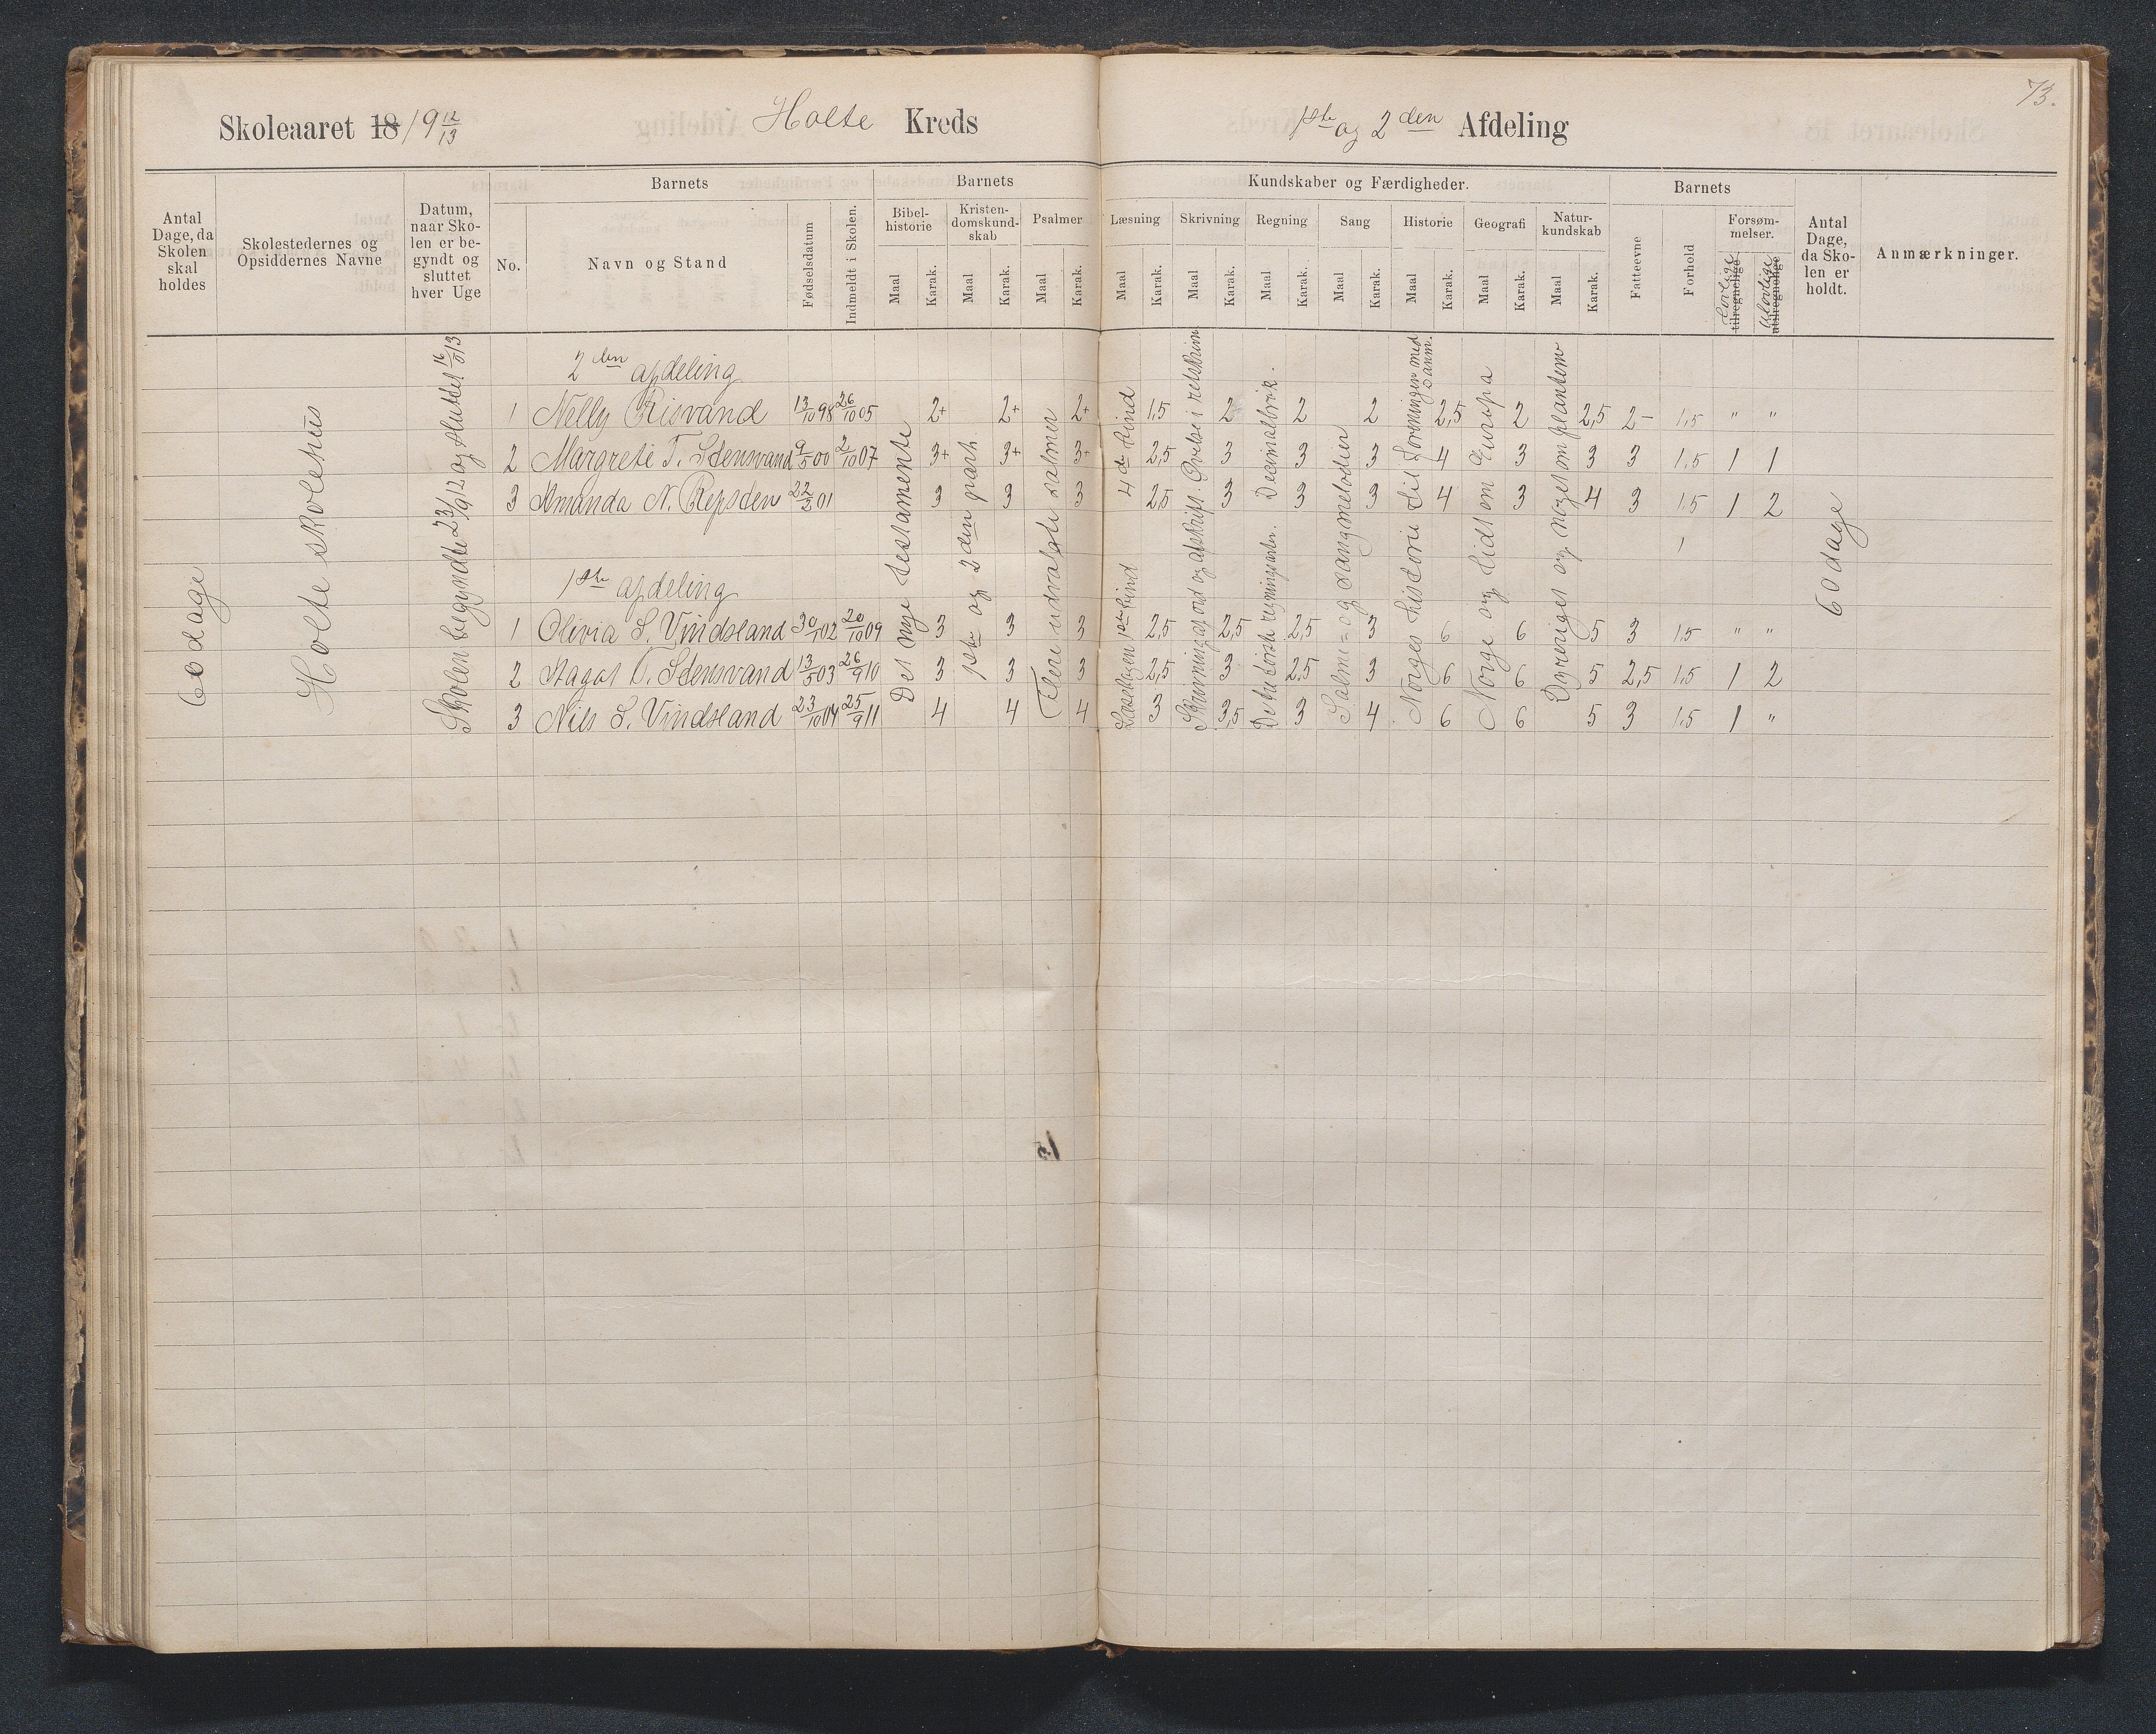 73.
Skoleaaret 18 19 12/13 Holte Kreds 1ste og 2den Afdeling
Antal Dage, da Skolen skal holdes
Skolestedernes og Opsiddernes Navne
Datum, naar Skolen er begyndt og sluttet hver Uge
Barnets
No.
Navn og Stand
Fødselsdatum
Indmeldt i Skolen.
Barnets Kundskaber og Færdigheder.
Bibelhistorie Maal Karak.
Kristendomskundskab Maal Karak.
Psalmer Maal Karak.
Læsning Maal Karak.
Skrivning Maal Karak.
Regning Maal Karak.
Sang Maal Karak.
Historie Maal Karak.
Geografi Maal Karak.
Naturkundskab Maal Karak.
Barnets
Fatteevne
Forhold
Forsømmelser.
Lovlige tilregnelige
Ulovlige utilregnelige
Antal Dage, da Skolen er holdt.
Anmærkninger.
60 dage
Holte skolehus
Skolen begyndte 23/9 12 og sluttet 16/9 13
2den afdeling
1 Nelly Risvand 13/10 98 26/10 05 2+ 2+ 2+ 1,5 2 2 2 2,5 2 2,5 2- 1,5 " "
2 Margrete T. Stensvand 9/5 00 2/10 07 3+ 3+ 3+ 2,5 3 3 3 4 3 3 3 1,5 1 1
3 Amanda N. Repsten 22/3 01 3 3 3 2,5 3 3 3 4 3 4 3 1,5 1 2
1ste afdeling
1 Olivia S. Vindsland 30/1 02 20/10 09 3 3 3 2,5 2,5 2,5 3 6 6 5 3 1,5 " "
2 Aagot T. Stensvand 13/5 03 26/9 10 3 3 3 2,5 3 2,5 3 6 6 5 2,5 1,5 1 2
3 Nils S. Vindsland 23/10 04 25/9 11 4 4 4 3 3,5 3 4 6 6 5 3 1,5 1 "
Det nye testamente
1ste og 2den part
Flere udvalgte salmer
Læsebogen 1ste bind 4de bind
Skrivning af ord og afskrift. Øvelse i retskrivn
De fire første regningsarter. Decimalbrøk.
Salme= og sangmelodier
Norges historie til foreningen med Danm.
Norge og lidt om Europa
Dyreriget og noget om planterne
60 dage